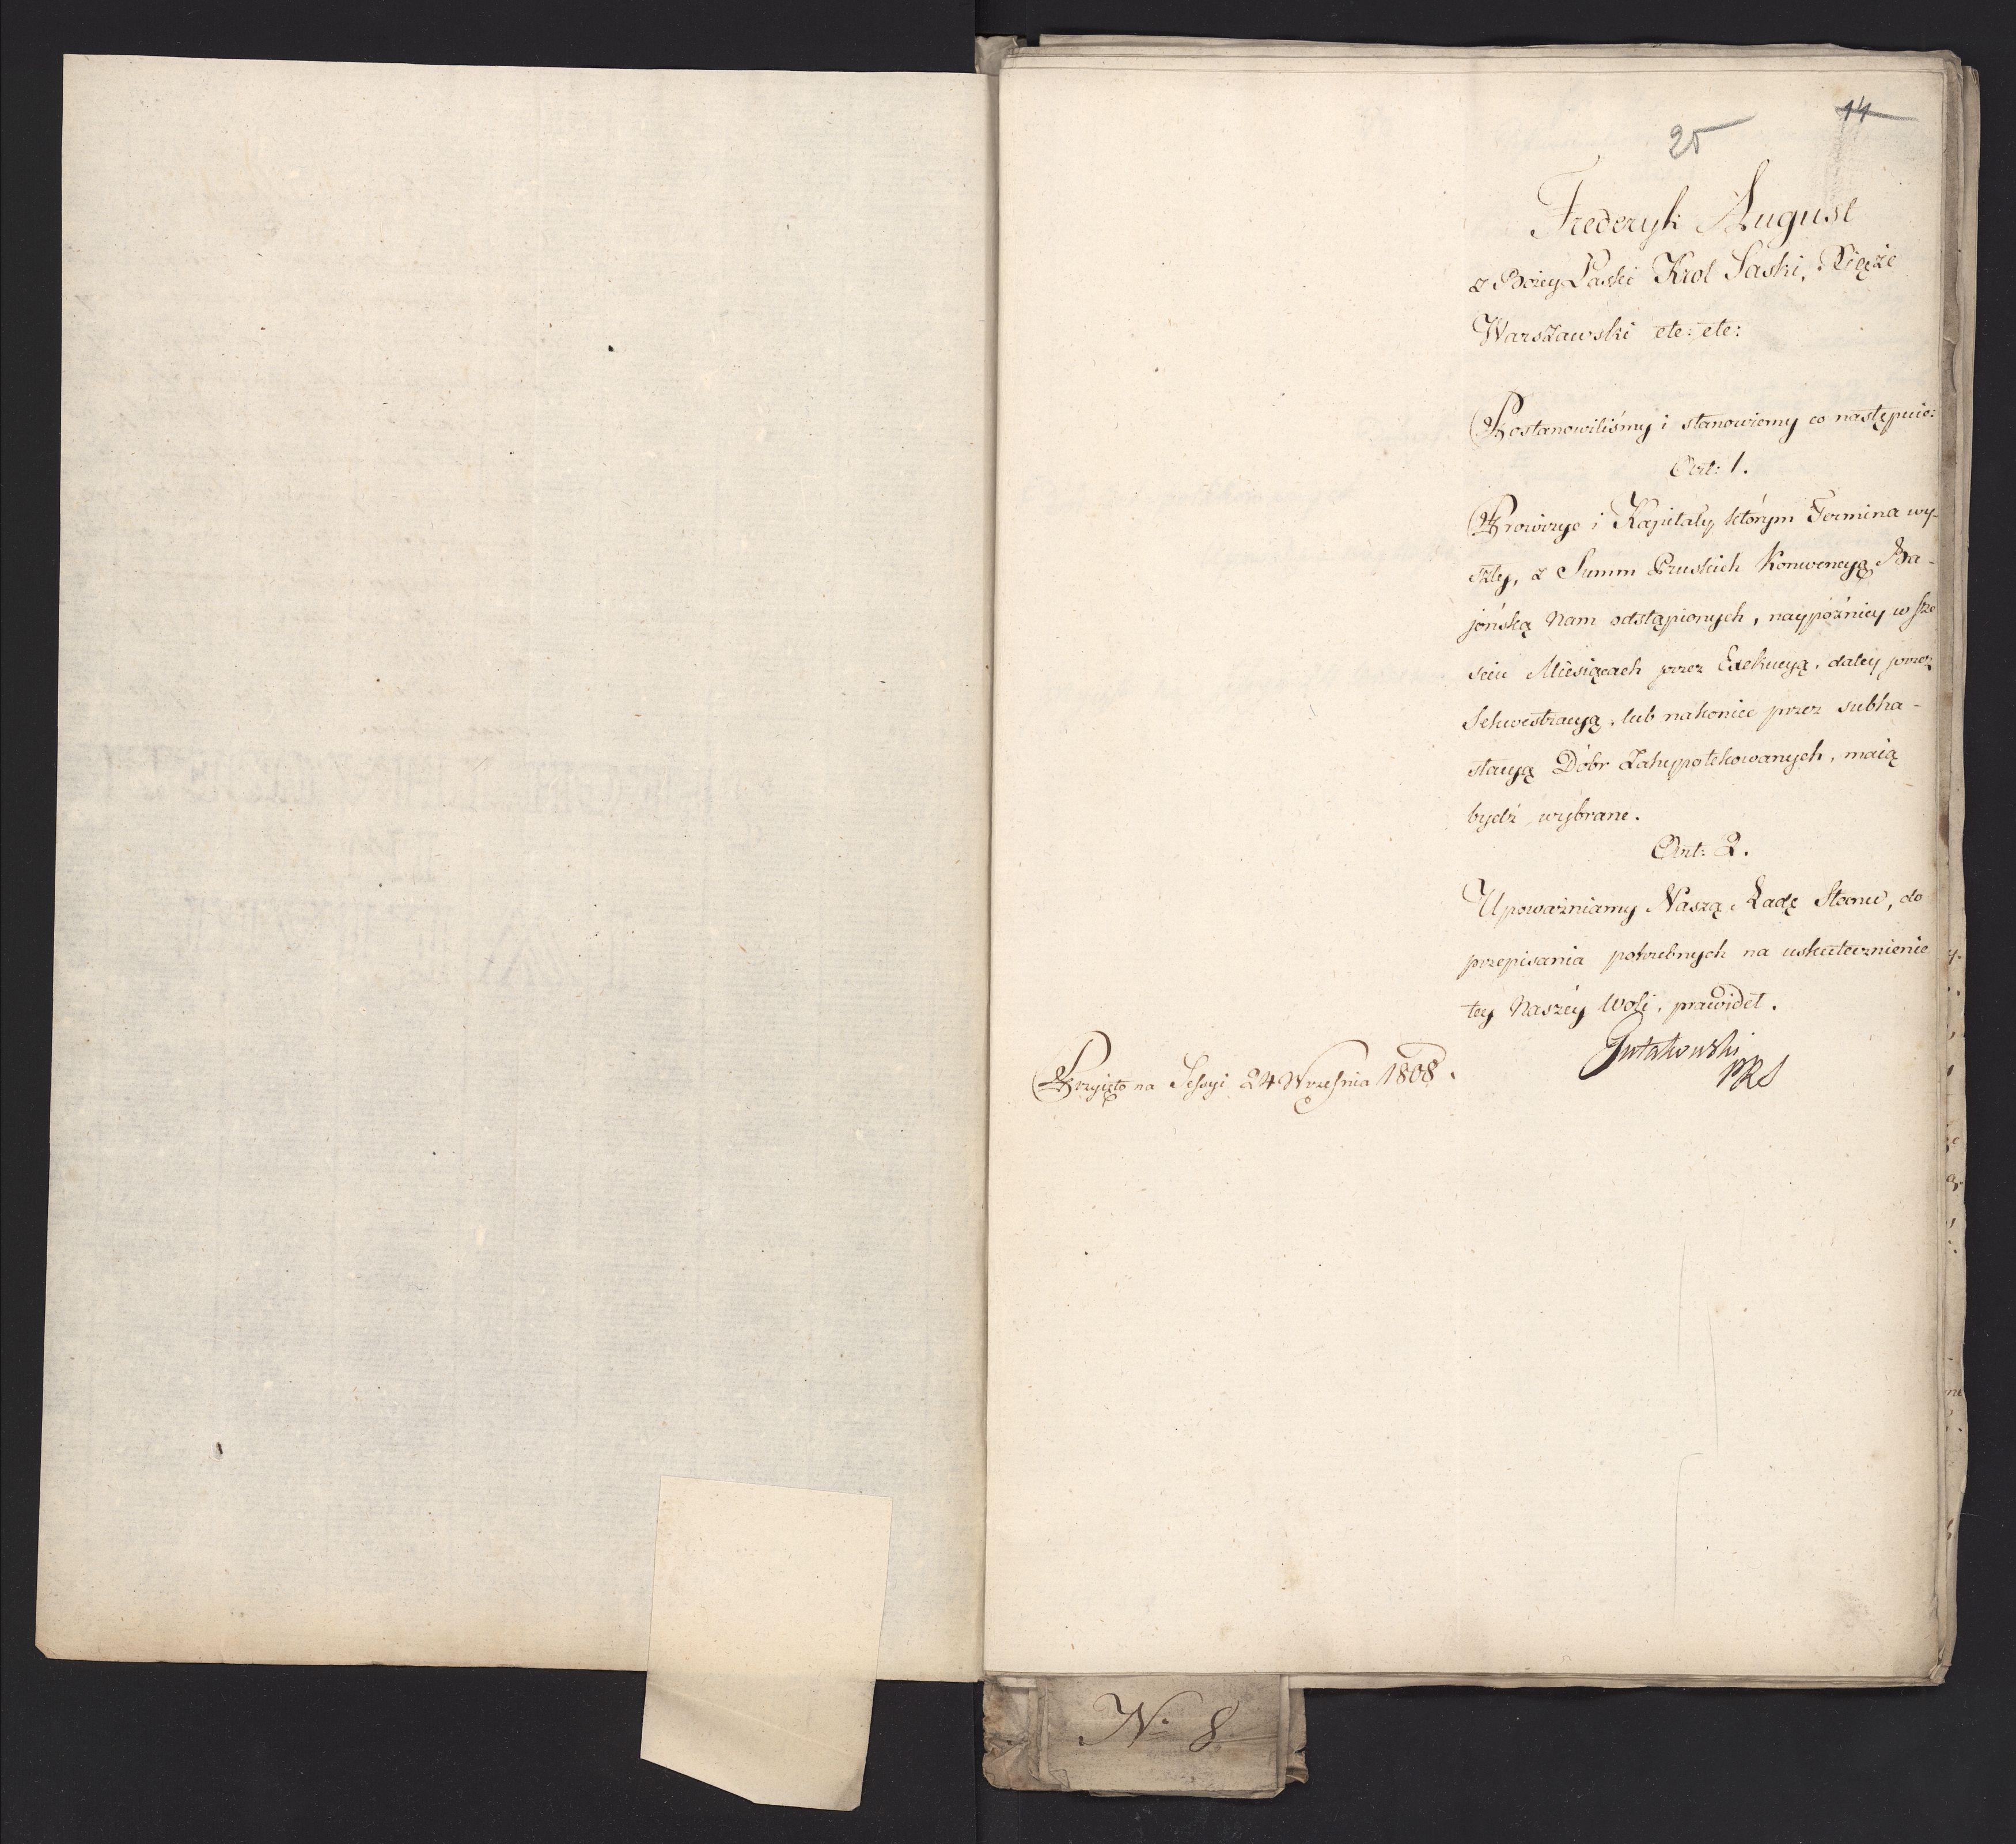 14
25
Frederyk August
z Bożey Łaski Krol Saski, Xiąże
Warszawski etc: etc:
Postanowiliśmy i stanowiemy co następuie:
Art: 1.
Prowizye i Kapitały, którym Termina wy-
szły, z Summ Pruskich Konwencyą Ba-
jońską Nam odstąpionych, naypoźniey w sze
sciu Miesiącach przez Exekucyą, daley przez
Sekwestracyą, lub nakoniec przez subha-
stacyą Dóbr Zahypotekowanych, maią
bydź wybrane.
Art: 2.
Upoważniamy Naszą Radę Stanu, do
przepisania potrzebnych na uskutecznienie
tey Naszéy Woli, prawideł.
Gutakowski
PRS
Przyięto na Sessyi 24 Września 1808.
N: 8